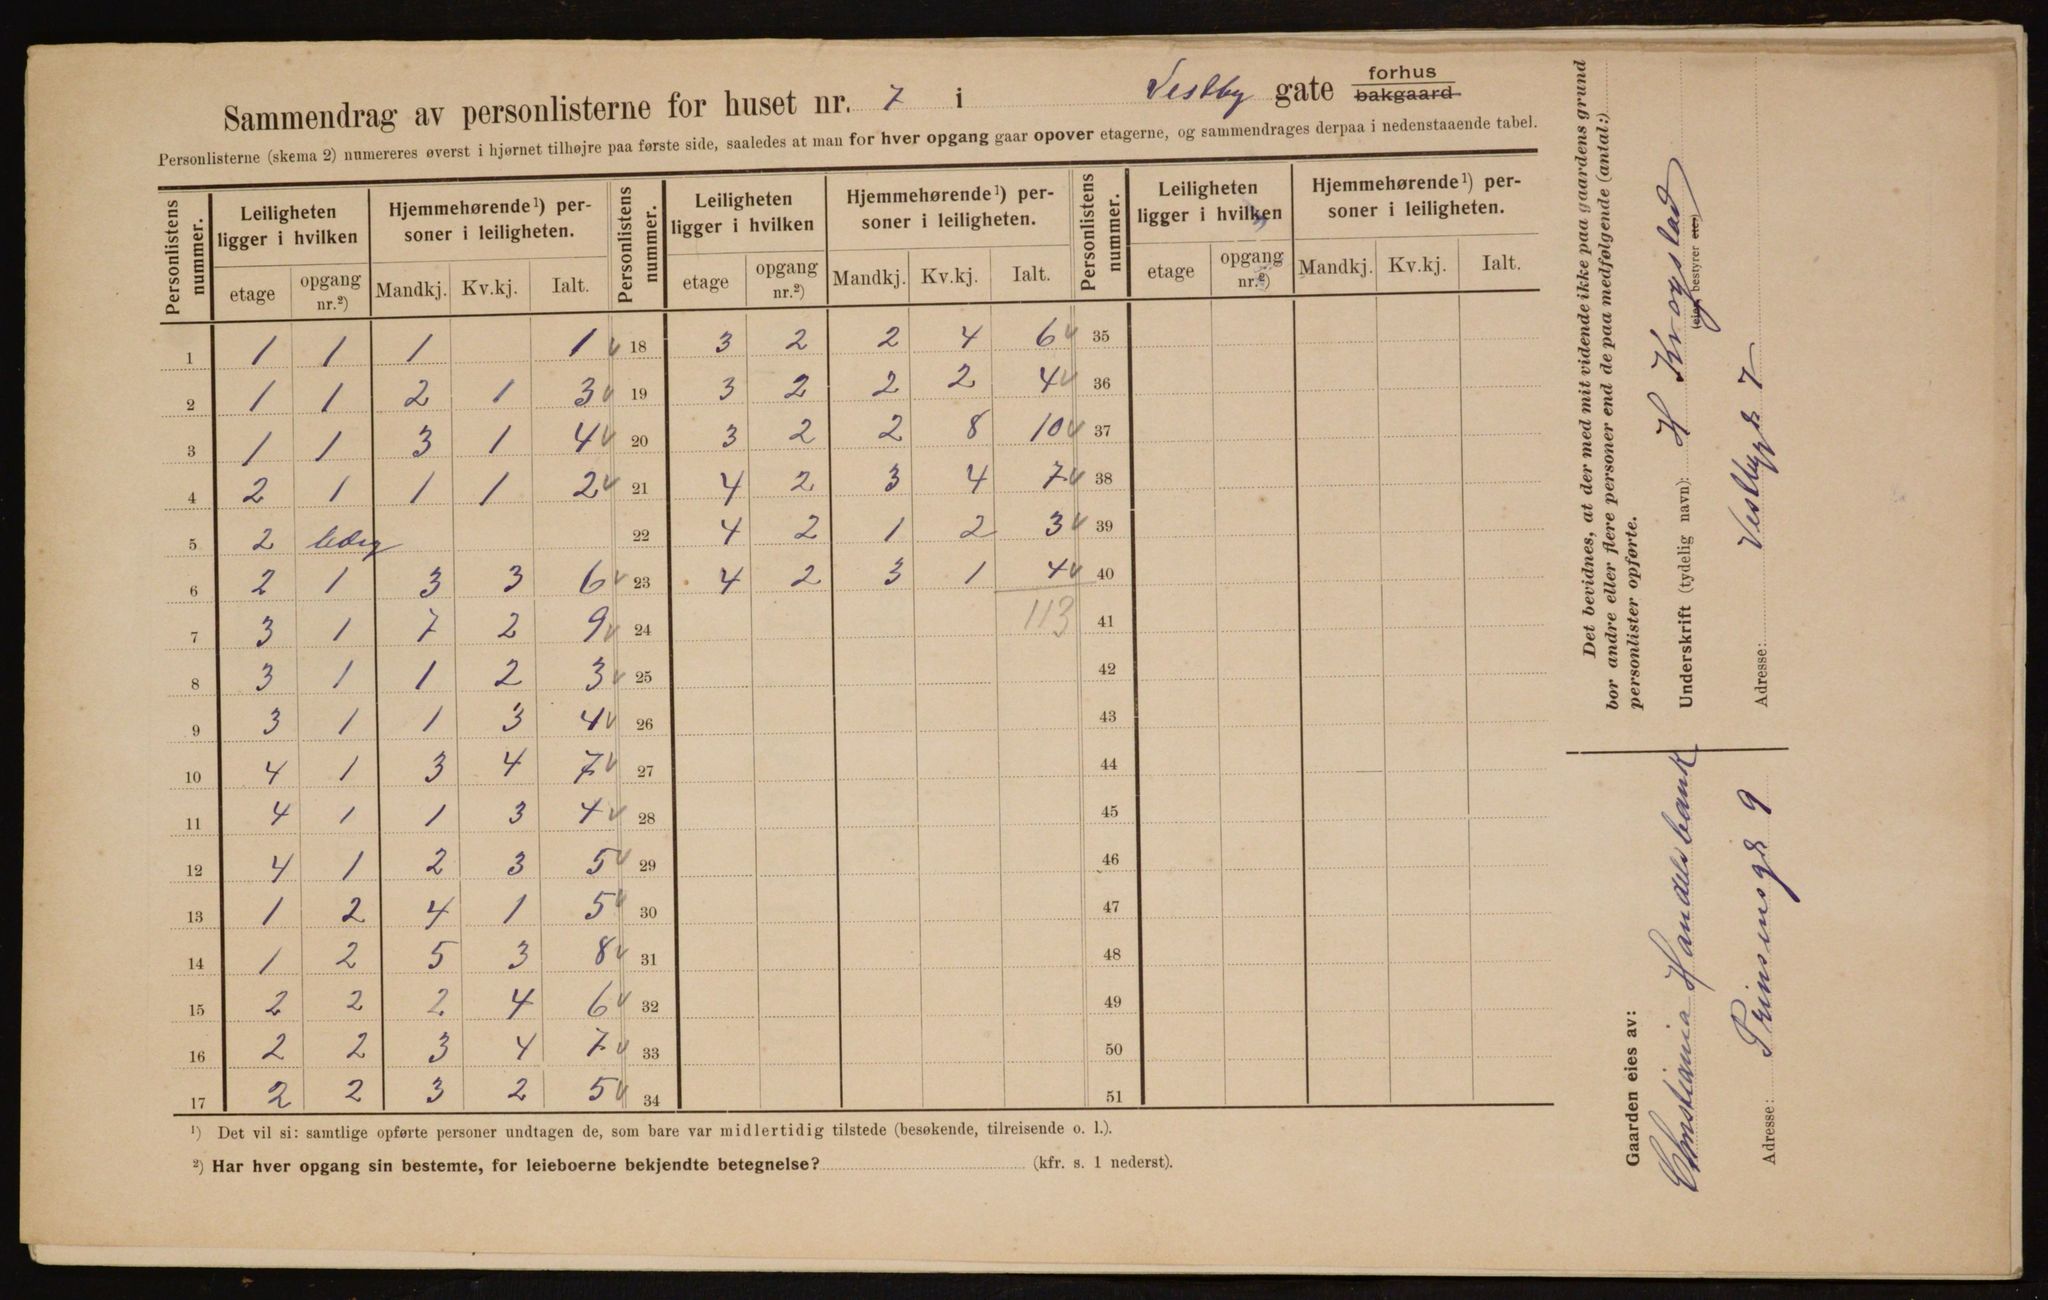 Sammendrag av personlisterne for huset nr. 7 i Vestby gate forhus bakgaard
Personlisterne (skema 2) numereres øverst i hjørnet tilhøjre paa første side, saaledes at man for hver opgang gaar opover etagerne, og sammendrages derpaa i nedenstaaende tabel.
Personlistens nummer. Leiligheten ligger i hvilken Hjemmehørende¹) personer i leiligheten. Personlistens nummer. Leiligheten ligger i hvilken Hjemmehørende¹) personer i leiligheten. Personlistens nummer. Leiligheten ligger i hvilken Hjemmehørende¹) personer i leiligheten.
etage opgang nr.²) Mandkj. Kv.kj. Ialt. etage opgang nr.²) Mandkj. Kv.kj. Ialt. etage opgang nr.²) Mandkj. Kv.kj. Ialt.
1 1 1 1 1 18 3 2 2 4 6 35
2 1 1 2 1 3 19 3 2 2 2 4 36
3 1 1 3 1 4 20 3 2 2 8 10 37
4 2 1 1 1 2 21 4 2 3 4 7 38
5 2 22 4 2 1 2 3 39
6 2 1 3 3 6 23 4 2 3 1 4 40
7 3 1 7 2 9 24 113 41
8 3 1 1 2 3 25 42
9 3 1 1 3 4 26 43
10 4 1 3 4 7 27 44
11 4 1 1 3 4 28 45
12 4 1 2 3 5 29 46
13 1 2 4 1 5 30 47
14 1 2 5 3 8 31 48
15 2 2 2 4 6 32 49
16 2 2 3 4 7 33 50
17 2 2 3 2 5 34 51
¹) Det vil si: samtlige opførte personer undtagen de, som bare var midlertidig tilstede (besøkende, tilreisende o. l.).
²) Har hver opgang sin bestemte, for leieboerne bekjendte betegnelse? (kfr. s. 1 nederst).
Det bevidnes, at der med mit vidende ikke paa gaardens grund
bor andre eller flere personer end de paa medfølgende (antal:)
personlister opførte.
Underskrift (tydelig navn): H Krogstad
(eier, bestyrer etc.)
Adresse: Vestbygt 7
Gaarden eies av:
Christiania Handelsbank
Adresse: Prinsensgt 9